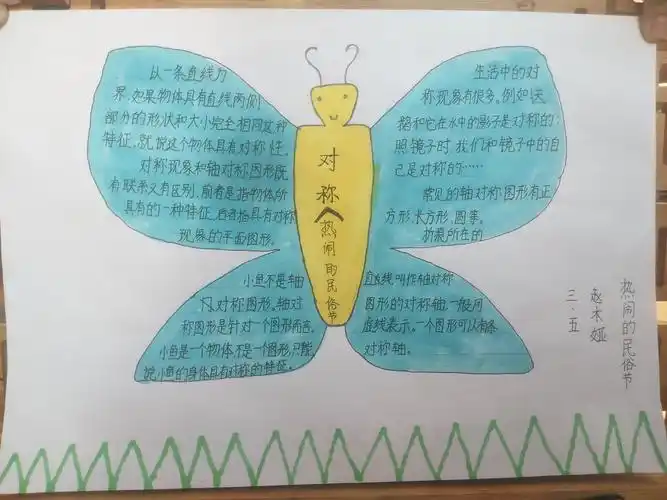 以一条直线为
界，如果物体具有直线两侧
部分的形状和大小完全相同这种
特征，就说这个物体具有对称性。
对称现象和轴对称图形既
有联系又有区别，前者是指物体所
具有的一种特征，后者指具有对称
现象的平面图形。
小鱼不是轴
对称图形。轴对
称图形是针对一个图形而言，
小鱼是一个物体，不是一个图形，只能
说小鱼的身体具有对称的特征。
对称
热闹的民俗节
生活中的对
称现象有很多。例如：天
鹅和它在水中的影子是对称的；
照镜子时，我们和镜子中的自
己是对称的……
常见的轴对称图形有正
方形、长方形、圆等。
折痕所在的
直线，叫作轴对称
图形的对称轴，一般用
虚线表示。一个图形可以有多
对称轴。
热闹的民俗节
赵木娅
三·五